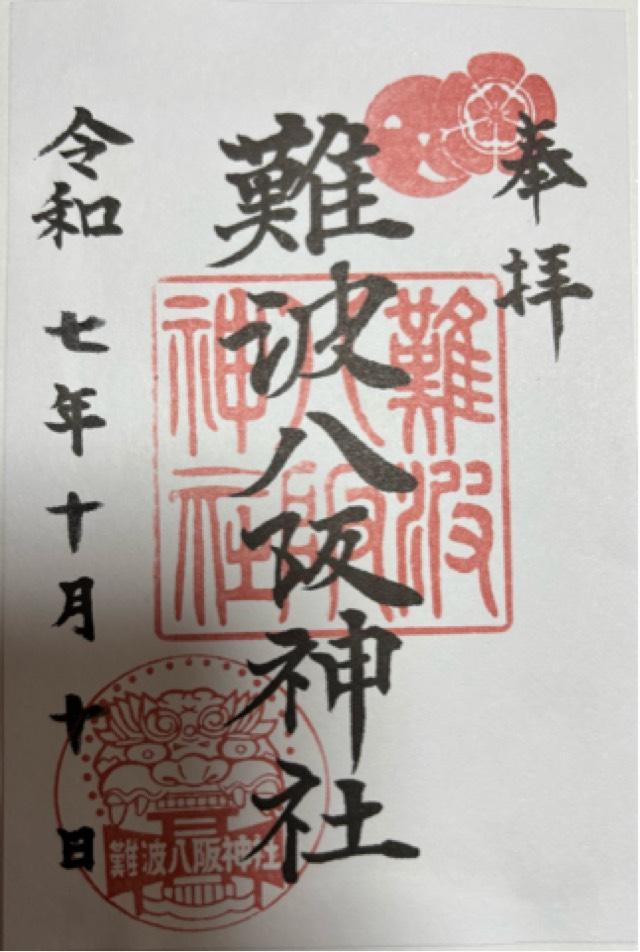 奉拝
難波八阪神社
令和 七年十月十日
難波八阪神社
難波八阪神社